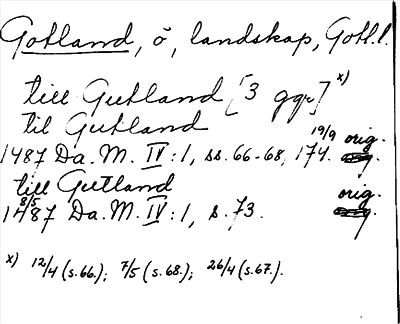 Gotland, ö, landskap, Gotl.l.
till Gutland [3 ggr] x)
til Gutland
1487 Da. M. IV:1, ss. 66-68, 174. 19/9 orig.
till Gutland
1487 8/5 Da. M. IV:1, s. 73. orig.
x) 12/4 (s.66.); 7/5 (s.68.); 26/4 (s.67.).